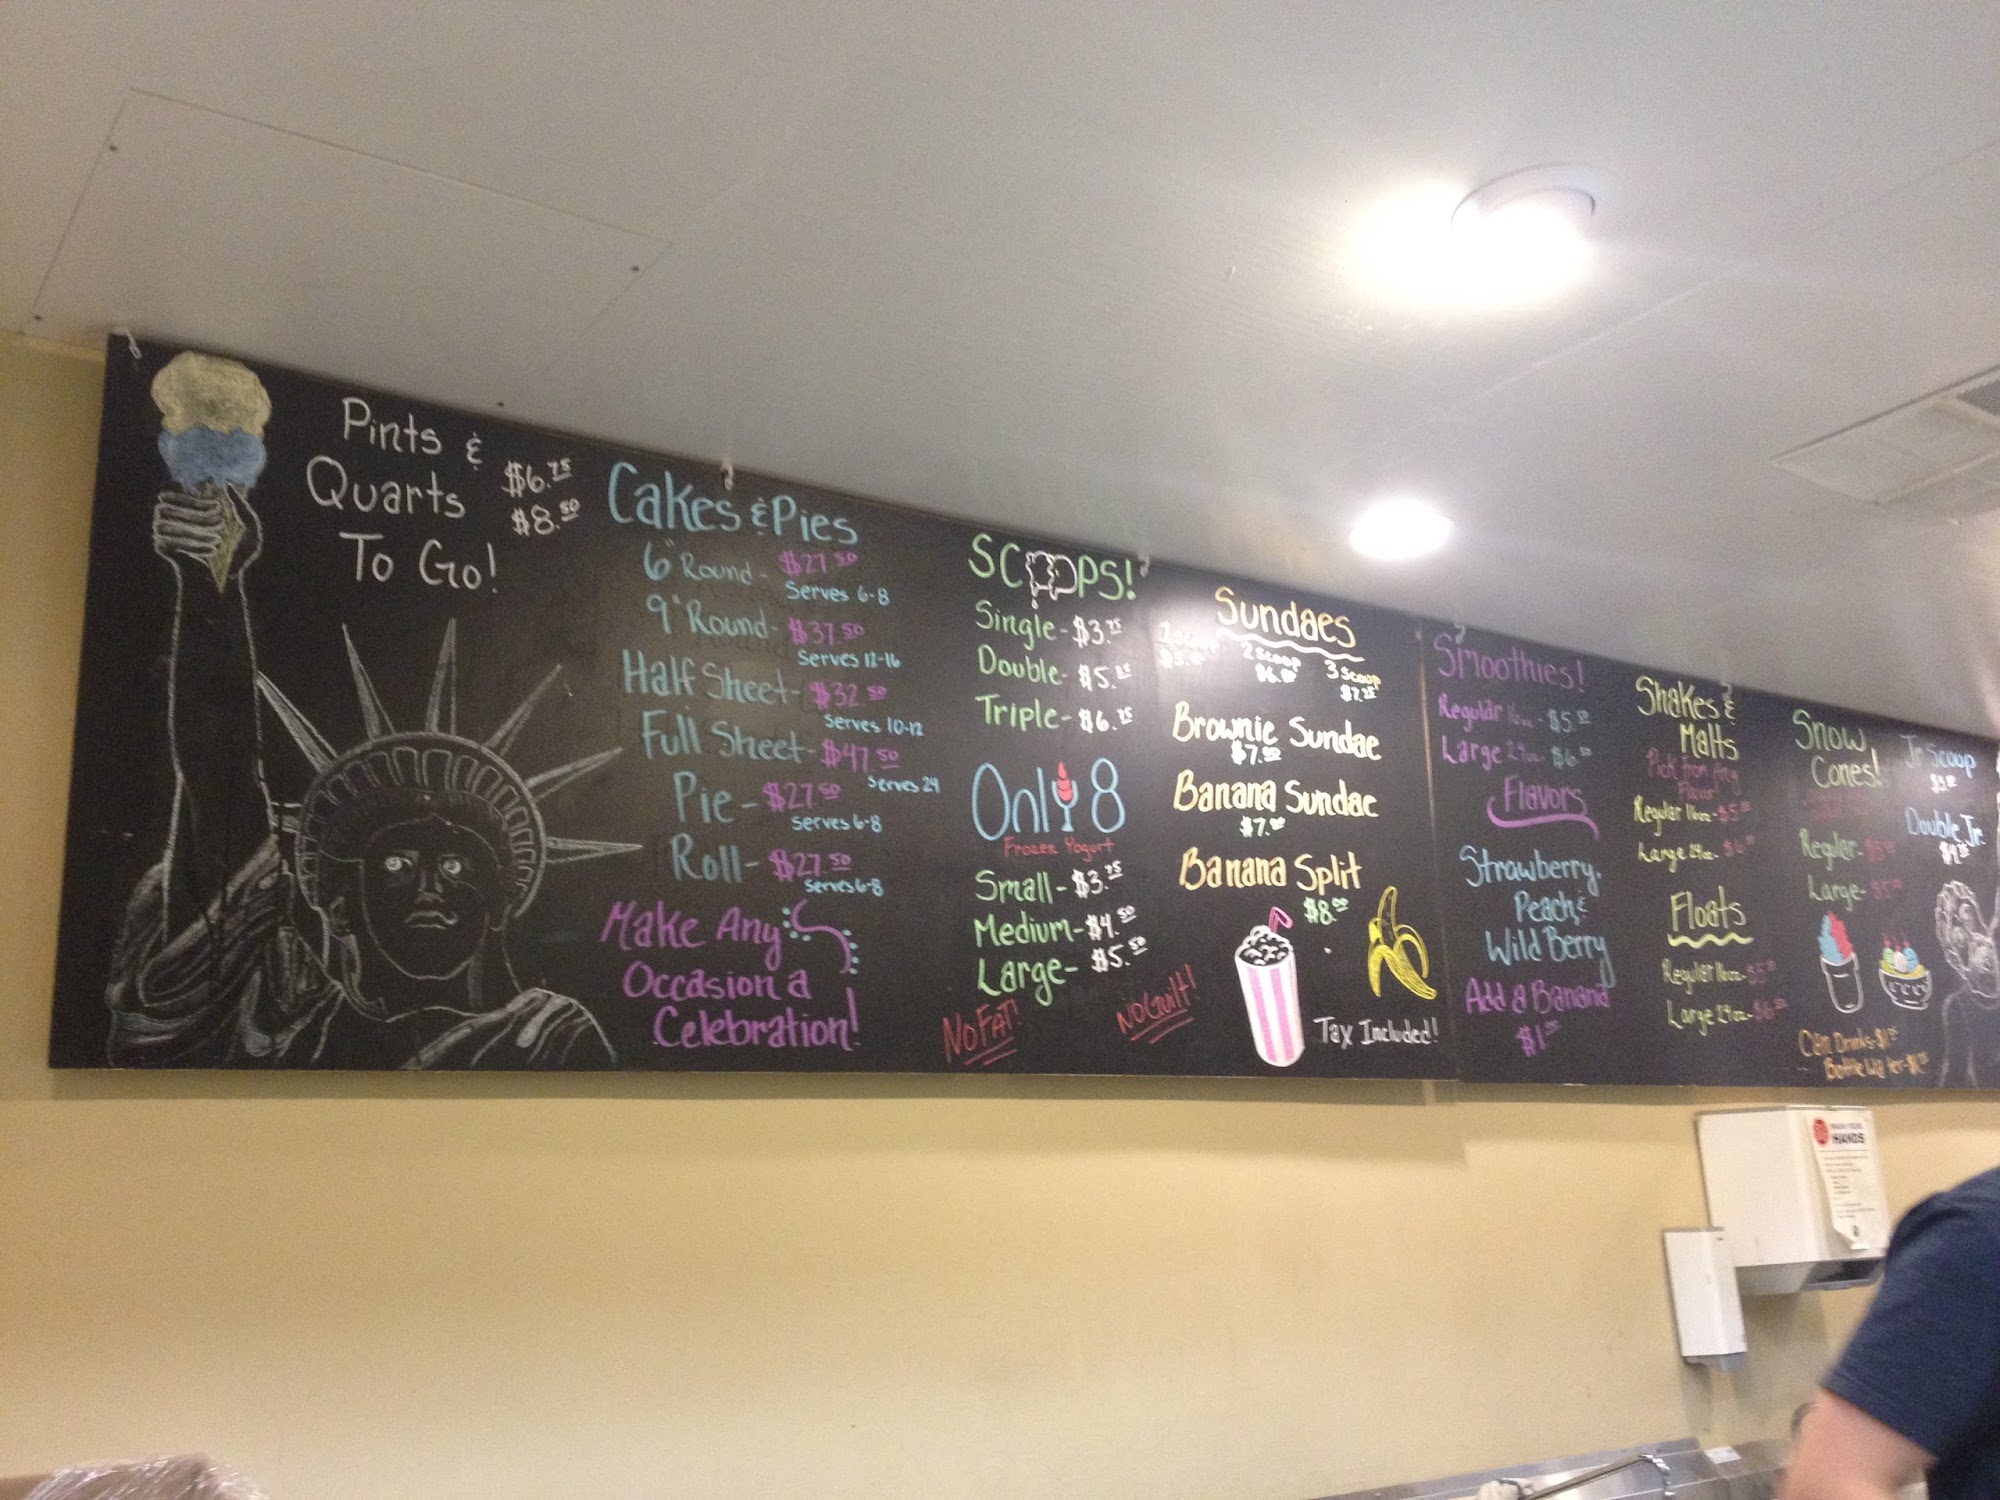 Pints &
Quarts
To Go!
$6.75
$8.50
Cakes & Pies
6" Round - $27.50
Serves 6-8
9" Round - $37.50
Serves 12-16
Half Sheet - $32.50
Serves 10-12
Full Sheet - $47.50
Serves 24
Pie - $27.50
Serves 6-8
Roll - $27.50
Serves 6-8
Make Any
Occasion a
Celebration!
SCOOPS!
Single - $3.75
Double - $5.25
Triple - $6.75
Only 8
Frozen Yogurt
Small - $3.75
Medium - $4.50
Large - $5.50
No Fat!
No Guilt!
Sundaes
1 Scoop 2 Scoop 3 Scoop
$7.25
Brownie Sundae
Banana Sundae
Banana Split
$8.00
Tax Included!
Smoothies!
Regular 16oz - $5.50
Large 24oz - $6.50
Flavors
Strawberry,
Peach, &
Wild Berry
Add a Banana
Shakes &
Malts
Pick from Any
Flavor!
Regular 16oz -
Large 24oz -
Floats
Regular 16oz -
Large 24oz -
Snow
Cones!
Regular -
Large -
Can Drinks -
Bottle Water -
Jr Scoop
Double Jr.
HANDS